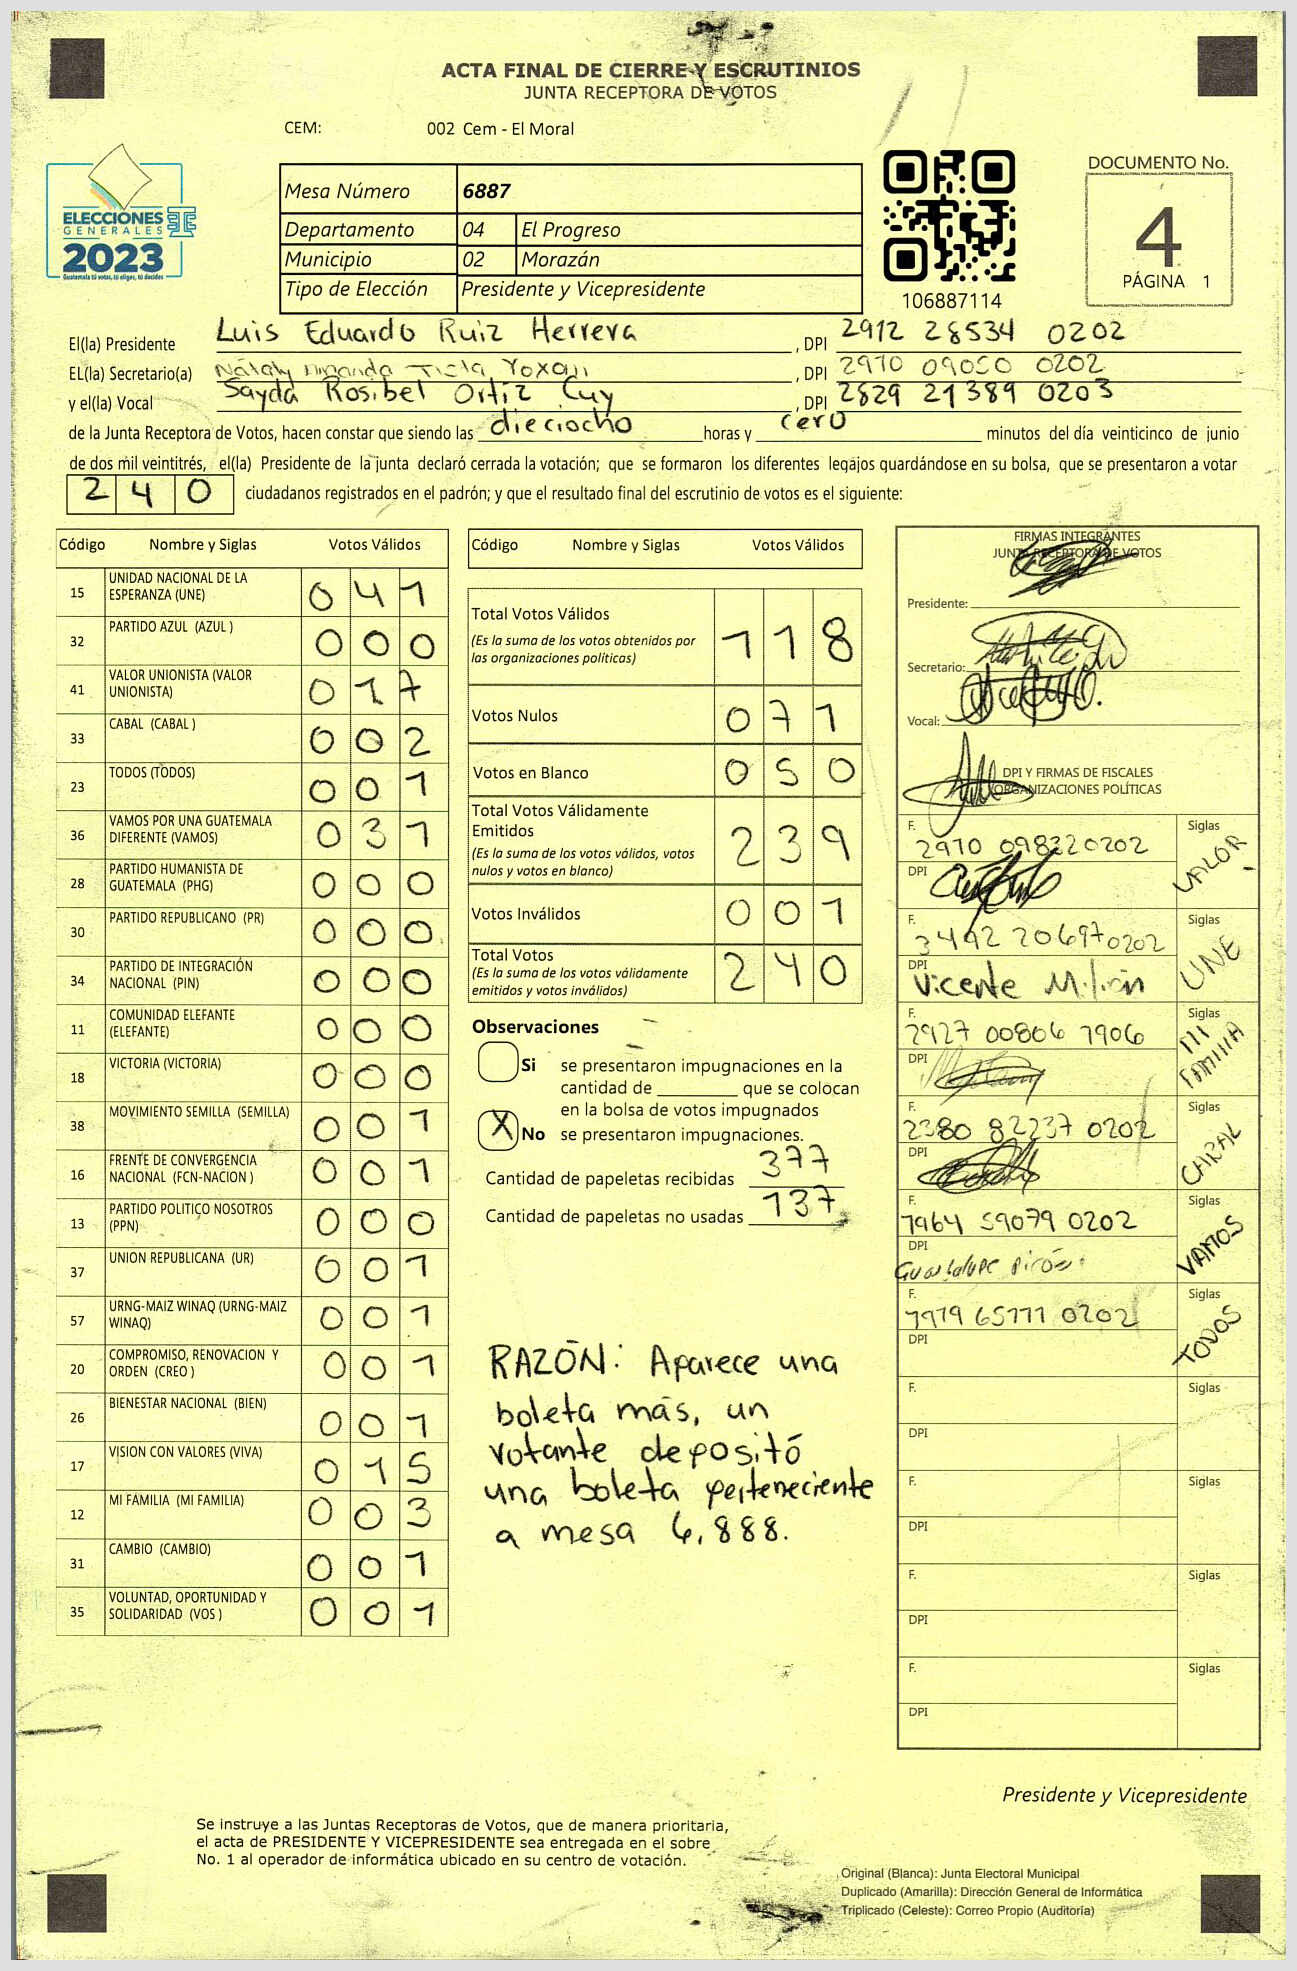 ACTA FINAL DE CIERRE Y ESCRUTINIOS
JUNTA RECEPTORA DE VOTOS
CEM: 002 Cem - El Moral
ELECCIONES
GENERALES
2023
Guatemala tú votas, tú eliges, tú decides
Mesa Número 6887
Departamento 04 El Progreso
Municipio 02 Morazán
Tipo de Elección Presidente y Vicepresidente
106887114
DOCUMENTO No.
4
PÁGINA 1
El(la) Presidente Luis Eduardo Ruiz Herrera , DPI 2912 28534 0202
EL(la) Secretario(a) , DPI 2970 09050 0202
y el(la) Vocal Sayda Rosibel Ortiz Cuy , DPI 2829 21389 0203
de la Junta Receptora de Votos, hacen constar que siendo las dieciocho horas y cero minutos del día veinticinco de junio
de dos mil veintitrés, el(la) Presidente de la junta declaró cerrada la votación; que se formaron los diferentes legajos guardándose en su bolsa, que se presentaron a votar
240 ciudadanos registrados en el padrón; y que el resultado final del escrutinio de votos es el siguiente:
Código Nombre y Siglas Votos Válidos
15 UNIDAD NACIONAL DE LA ESPERANZA (UNE) 041
32 PARTIDO AZUL (AZUL ) 000
41 VALOR UNIONISTA (VALOR UNIONISTA) 017
33 CABAL (CABAL ) 002
23 TODOS (TODOS) 001
36 VAMOS POR UNA GUATEMALA DIFERENTE (VAMOS) 031
28 PARTIDO HUMANISTA DE GUATEMALA (PHG) 000
30 PARTIDO REPUBLICANO (PR) 000
34 PARTIDO DE INTEGRACIÓN NACIONAL (PIN) 000
11 COMUNIDAD ELEFANTE (ELEFANTE) 000
18 VICTORIA (VICTORIA) 000
38 MOVIMIENTO SEMILLA (SEMILLA) 001
16 FRENTE DE CONVERGENCIA NACIONAL (FCN-NACION ) 001
13 PARTIDO POLITICO NOSOTROS (PPN) 000
37 UNION REPUBLICANA (UR) 001
57 URNG-MAIZ WINAQ (URNG-MAIZ WINAQ) 001
20 COMPROMISO, RENOVACION Y ORDEN (CREO ) 001
26 BIENESTAR NACIONAL (BIEN) 001
17 VISION CON VALORES (VIVA) 015
12 MI FAMILIA (MI FAMILIA) 003
31 CAMBIO (CAMBIO) 001
35 VOLUNTAD, OPORTUNIDAD Y SOLIDARIDAD (VOS ) 001
Código Nombre y Siglas Votos Válidos
Total Votos Válidos 118
(Es la suma de los votos obtenidos por
las organizaciones políticas)
Votos Nulos 071
Votos en Blanco 050
Total Votos Válidamente
Emitidos 239
(Es la suma de los votos válidos, votos
nulos y votos en blanco)
Votos Inválidos 001
Total Votos 240
(Es la suma de los votos válidamente
emitidos y votos inválidos)
Observaciones
Si se presentaron impugnaciones en la
cantidad de ________ que se colocan
en la bolsa de votos impugnados
X No se presentaron impugnaciones.
Cantidad de papeletas recibidas 377
Cantidad de papeletas no usadas 137
RAZÓN: Aparece una
boleta más, un
votante depositó
una boleta perteneciente
a mesa 6,888.
FIRMAS INTEGRANTES
JUNTA RECEPTORA DE VOTOS
Presidente:
Secretario:
Vocal:
DPI Y FIRMAS DE FISCALES
ORGANIZACIONES POLÍTICAS
F. Siglas
2970 098220202 VALOR
DPI
F. Siglas
3492 20697 0202 UNE
DPI Vicente
F. Siglas
2927 00806 1906 MI FAMILIA
DPI
F. Siglas
2380 82237 0202 CABAL
DPI
F. Siglas
1964 59079 0202 VAMOS
DPI Guadalupe
F. Siglas
1979 65771 0202 TODOS
DPI
F. Siglas
DPI
F. Siglas
DPI
F. Siglas
DPI
F. Siglas
DPI
Presidente y Vicepresidente
Se instruye a las Juntas Receptoras de Votos, que de manera prioritaria,
el acta de PRESIDENTE Y VICEPRESIDENTE sea entregada en el sobre
No. 1 al operador de informática ubicado en su centro de votación.
Original (Blanca): Junta Electoral Municipal
Duplicado (Amarilla): Dirección General de Informática
Triplicado (Celeste): Correo Propio (Auditoría)